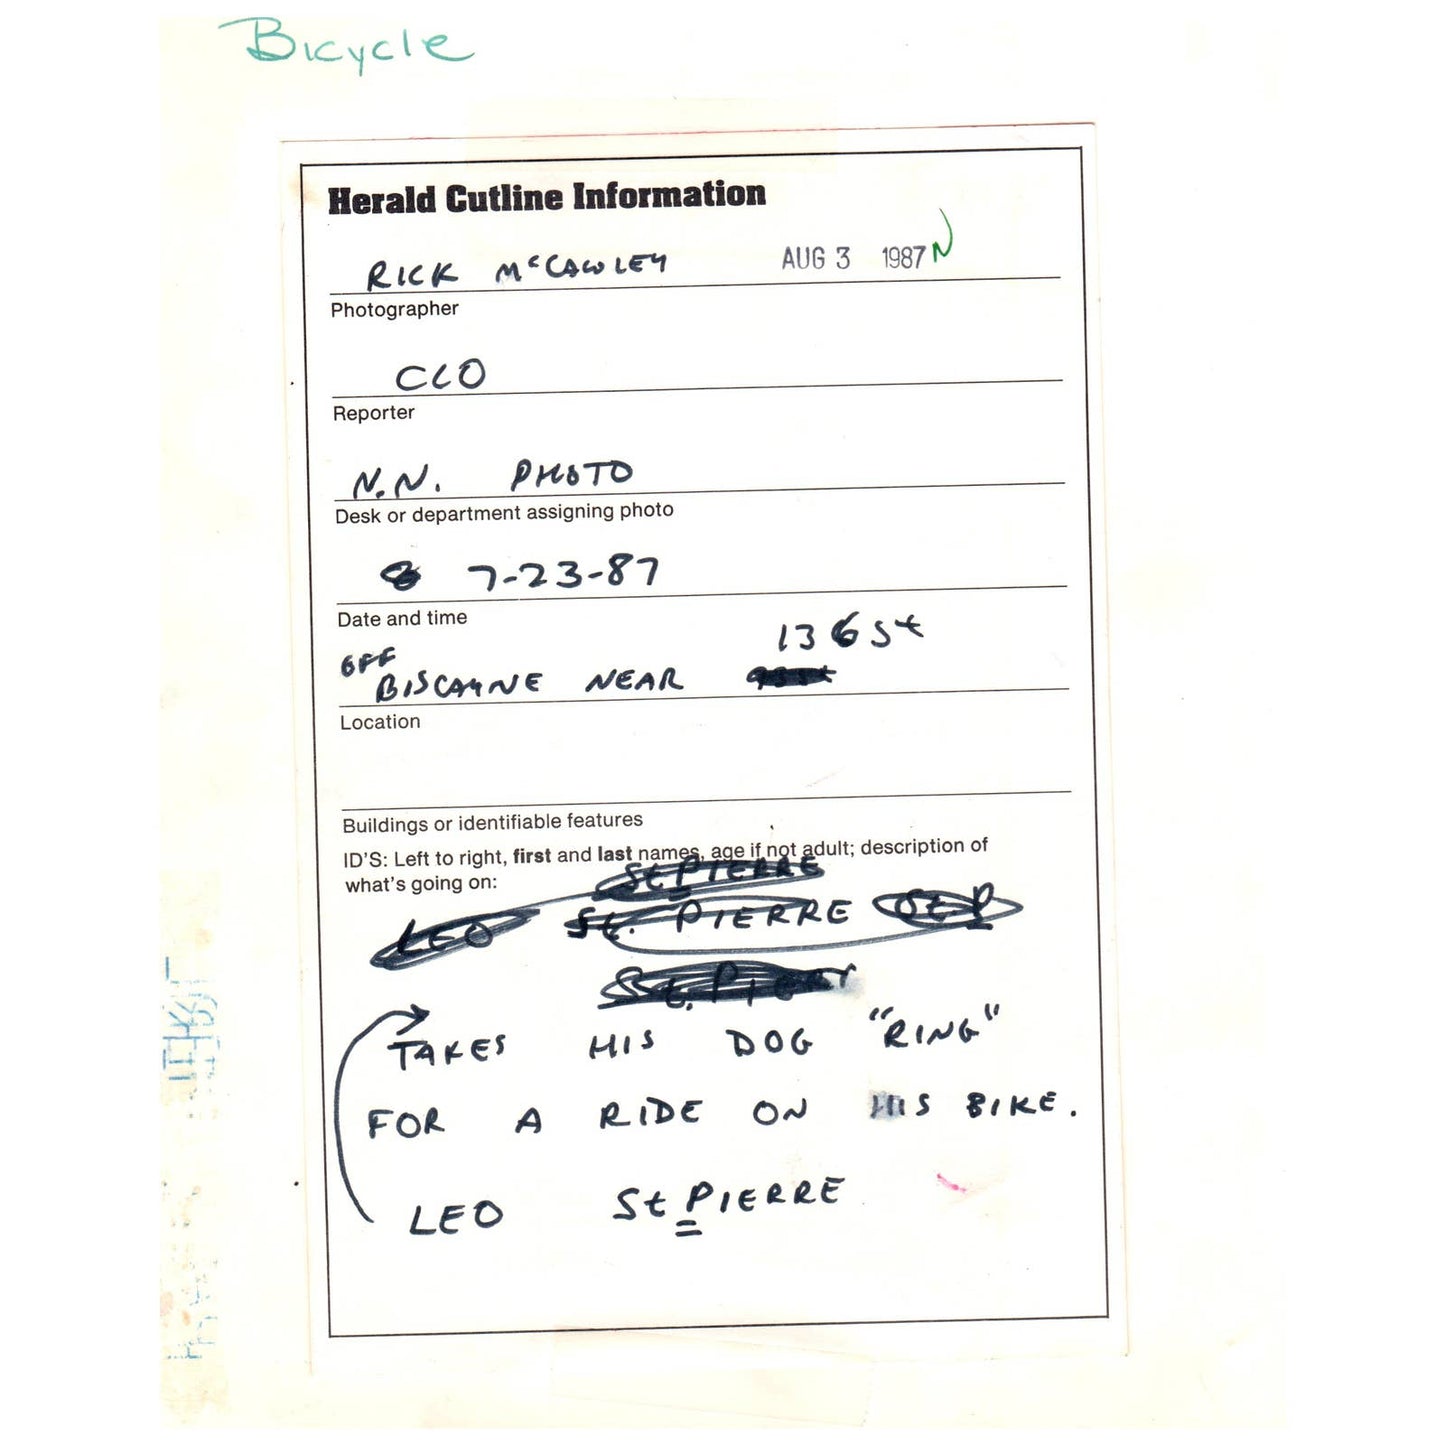 Bicycle
Herald Cutline Information
RICK McCAWLEY AUG 3 1987 N
Photographer
CLO
Reporter
N.N. PHOTO
Desk or department assigning photo
7-23-87
Date and time
OFF 136 St
BISCAYNE NEAR
Location
Buildings or identifiable features
ID'S: Left to right, first and last names, age if not adult; description of
what's going on:
St PIERRE
LEO St. PIERRE St P
St. Pier
TAKES HIS DOG "RING"
FOR A RIDE ON HIS BIKE.
LEO St PIERRE